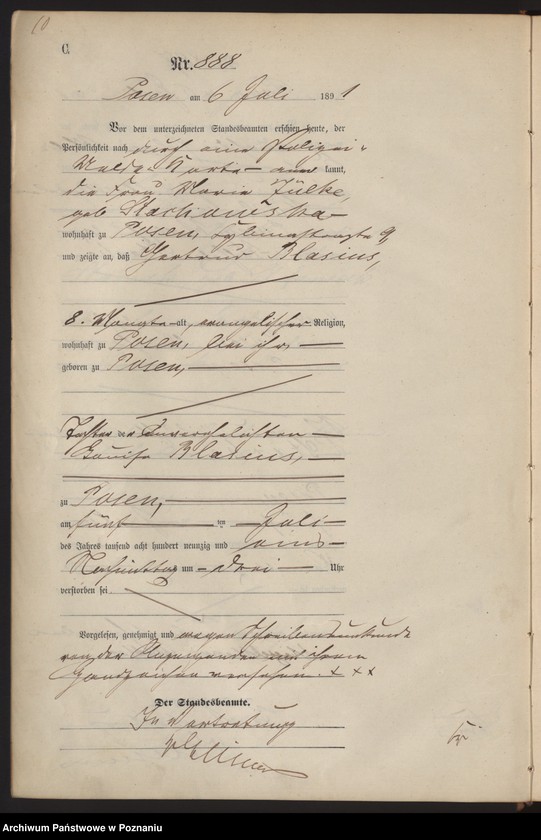 C.
Nr. 888
Posen am 6 Juli 1891
Vor dem unterzeichneten Standesbeamten erschien heute, der
Persönlichkeit nach durch eine Polizei-
Melde-Karte anerkannt,
die Frau Maria Jülke,
geb
wohnhaft zu Posen, 9,
und zeigte an, daß Gertrud Blasius,
8. Monate alt, evangelischer Religion,
wohnhaft zu Posen, bei ihr,
geboren zu Posen,
Tochter der unverehelichten
Louise Blasius,
zu Posen,
am fünf ten Juli
des Jahres tausend acht hundert neunzig und eins
Nachmittag um drei Uhr
verstorben sei
Vorgelesen, genehmigt und wegen Schreibensunkunde
von der Anzeigenden mit ihrem
Handzeichen versehen. + × ×
Der Standesbeamte.
In Vertretung
Archiwum Państwowe w Poznaniu